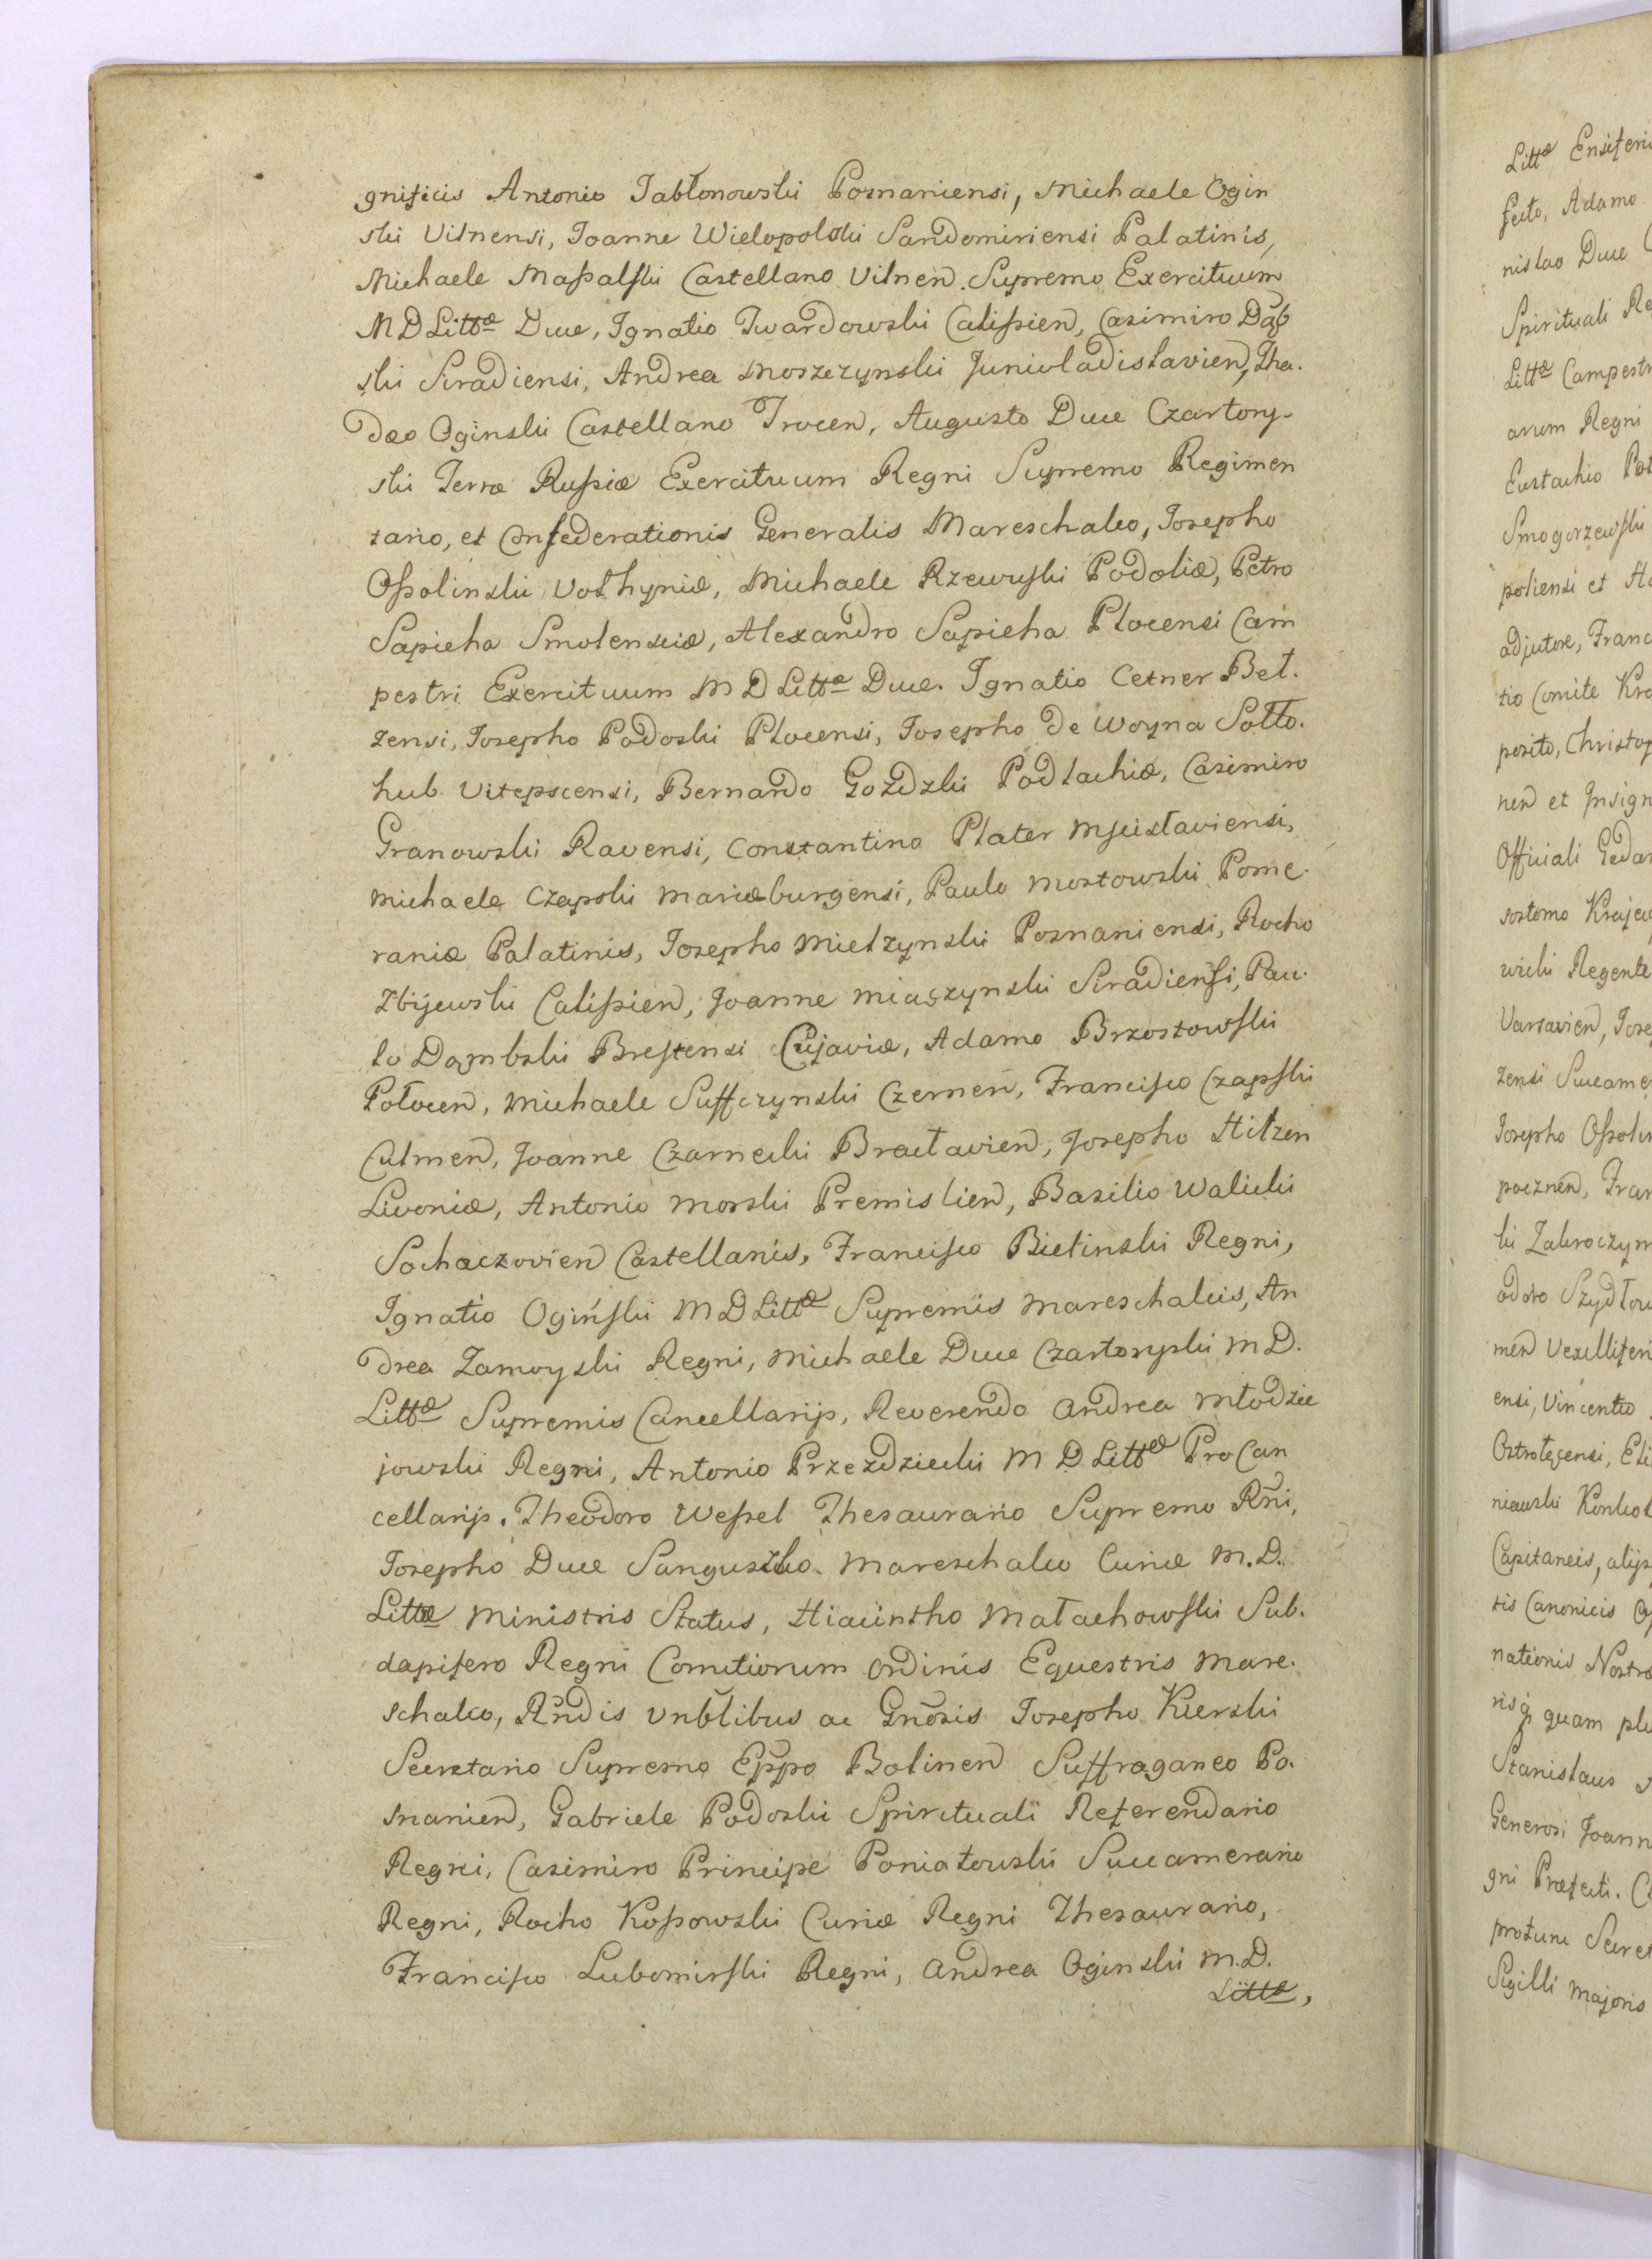 gnificis Antonio Jabłonowski Posnaniensi, Michaele Ogin
ski Vilnensi, Joanne Wielopolski Sandomiriensi Palatinis,
Michaele Maßalski Castellano Vilnen. Supremo Exercituum
M D Littæ Duce, Ignatio Twardowski Calißien, Casimiro Dąb
ski Siradiensi, Andrea Moszczynski Junivladislavien, Tha.
dæo Oginski Castellano Trocen, Augusto Duce Czartory-
ski Terræ Rußiæ Exercituum Regni Supremo Regimen
tario, et Confederationis Generalis Mareschalco, Josepho
Oßolinski Vołhyniæ, Michaele Rzewuski Podoliæ, Petro
Sapieha Smolensciæ, Alexandro Sapieha Plocensi Cam
pestri Exercituum M D Littæ Duce. Ignatio Cetner Bel.
zensi, Josepho Podoski Plocensi, Josepho de Woyna Sołło.
hub Vitepscensi, Bernardo Gozdzki Podlachiæ, Casimiro
Granowski Ravensi, Constantino Plater Mscisłaviensi,
Michaele Czapski Mariæburgensi, Paulo Mostowski Pome.
raniæ Palatinis, Josepho Mielzynski Posnaniensi, Rocho
Zbijewski Calißien, Joanne Miączynski Siradiensi, Pau.
lo Dąmbski Brestensi Cujaviæ, Adamo Brzostowski
Połocen, Michaele Suffczynski Czernen, Francisco Czapski
Culmen, Joanne Czarnecki Bracłavien, Josepho Hilzen
Livoniæ, Antonio Morski Premislien, Basilio Walicki
Sochaczovien Castellanis, Francisco Bielinski Regni,
Ignatio Ogiński M D Littæ Supremis Mareschalcis, An
drea Zamoyski Regni, Michaele Duce Czartoryski M D.
Littæ Supremis Cancellarijs, Reverendo Andrea Młodzie
jowski Regni, Antonio Przezdziecki M D Littæ ProCan
cellarijs. Theodoro Weßel Thesaurario Supremo Rñi,
Josepho Duce Sanguszko. Mareschalco Curiæ M. D.
Littæ Ministris Status, Hiacintho Małachowski Sub.
dapifero Regni Comitiorum Ordinis Equestris Mare.
schalco, Rñdis Vnblibus ac Gnosis Josepho Kierski
Secretario Supremo Eppo Bolinen Suffraganeo Po.
snanien, Gabriele Podoski Spirituali Referendario
Regni, Casimiro Principe Poniatowski Succamerario
Regni, Rocho Koßowski Curiæ Regni Thesaurario,
Francisco Lubomirski Regni, Andrea Oginski M.D.
Littæ,
Littæ Ensiferi
fecto, Adamo
nislao Duce
Spirituali Re
Littæ Campestr
arum Regni
Eustachio Pot
Smogorzewski
poliensi et
adjutore, Franc
tio Comite Kra
posito, Christop
nen et Insign
Officiali Gedan
sostomo Krajew
wicki Regente
Varsavien, Jose
zensi Succame
Josepho Oßolin
poeznen, Fran
ki Zakroczym
odoro Szydłow
men Vexillifer
ensi, Vincentio
Ostrolęcensi, Eli
niawski
Capitaneis, alijs
sis Canonicis
nationis Nostræ
risq quam plu
Stanislaus
Generosi Joann
gni Præfecti.
protunc Secret
Sigilli Majoris